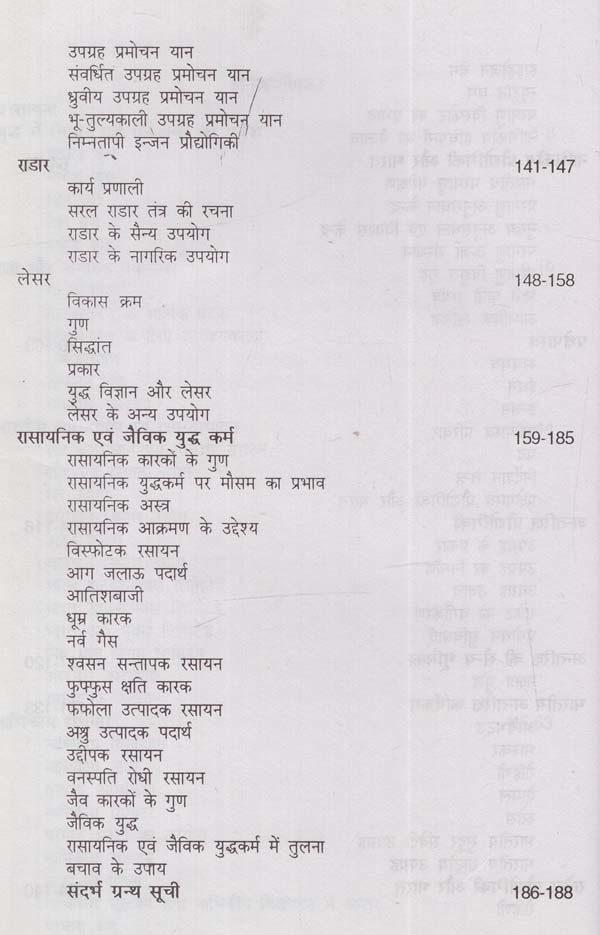 उपग्रह प्रमोचन यान
संवर्धित उपग्रह प्रमोचन यान
ध्रुवीय उपग्रह प्रमोचन यान
भू-तुल्यकाली उपग्रह प्रमोचन यान
निम्नतापी इन्जन प्रौद्योगिकी
राडार 141-147
कार्य प्रणाली
सरल राडार तंत्र की रचना
राडार के सैन्य उपयोग
राडार के नागरिक उपयोग
लेसर 148-158
विकास क्रम
गुण
सिद्धांत
प्रकार
युद्ध विज्ञान और लेसर
लेसर के अन्य उपयोग
रासायनिक एवं जैविक युद्ध कर्म 159-185
रासायनिक कारकों के गुण
रासायनिक युद्धकर्म पर मौसम का प्रभाव
रासायनिक अस्त्र
रासायनिक आक्रमण के उद्देश्य
विस्फोटक रसायन
आग जलाऊ पदार्थ
आतिशबाजी
धूम्र कारक
नर्व गैस
श्वसन सन्तापक रसायन
फुफ्फुस क्षति कारक
फफोला उत्पादक रसायन
अश्रु उत्पादक पदार्थ
उद्दीपक रसायन
वनस्पति रोधी रसायन
जैव कारकों के गुण
जैविक युद्ध
रासायनिक एवं जैविक युद्धकर्म में तुलना
बचाव के उपाय
संदर्भ ग्रन्थ सूची 186-188